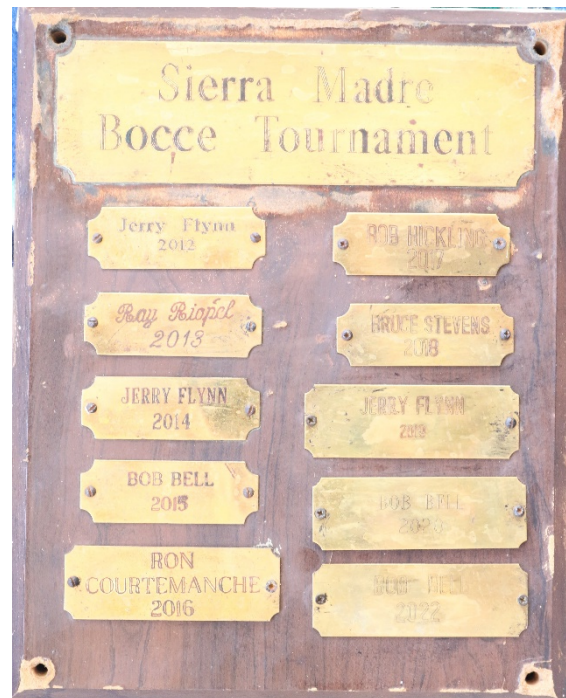 Sierra Madre
Bocce Tournament
Jerry Flynn
2012
Ray Riopel
2013
JERRY FLYNN
2014
BOB BELL
2015
RON
COURTEMANCHE
2016
BOB HICKLING
2017
BRUCE STEVENS
2018
JERRY FLYNN
2019
BOB BELL
2022